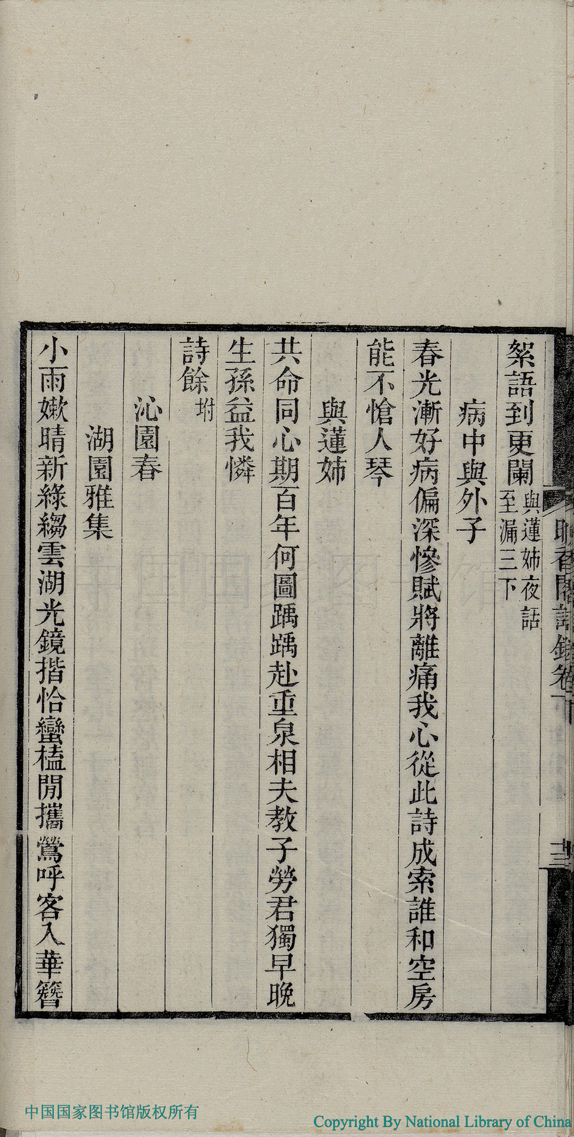 絮語到更闌與蓮姊夜話至漏三下
病中與外子
春光漸好病偏深慘賦將離痛我心從此詩成索誰和空房
能不愴人琴
與蓮姊
共命同心期百年何圖踽踽赴重泉相夫教子勞君獨早晚
生孫益我憐
詩餘坿
沁園春
湖園雅集
小雨嫩晴新綠縐雲湖光鏡揩恰蠻榼閒攜鶯呼客入華簪
香閣詩鈔卷下
十三
中国国家图书馆版权所有
Copyright By National Library of China